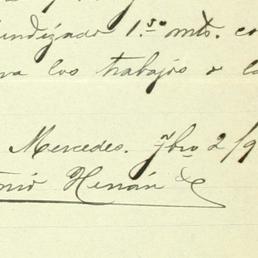 undizado 1.50 mts. co
ra los trabajos a la
Mercedes. 7bre 2/9
onio Hernán